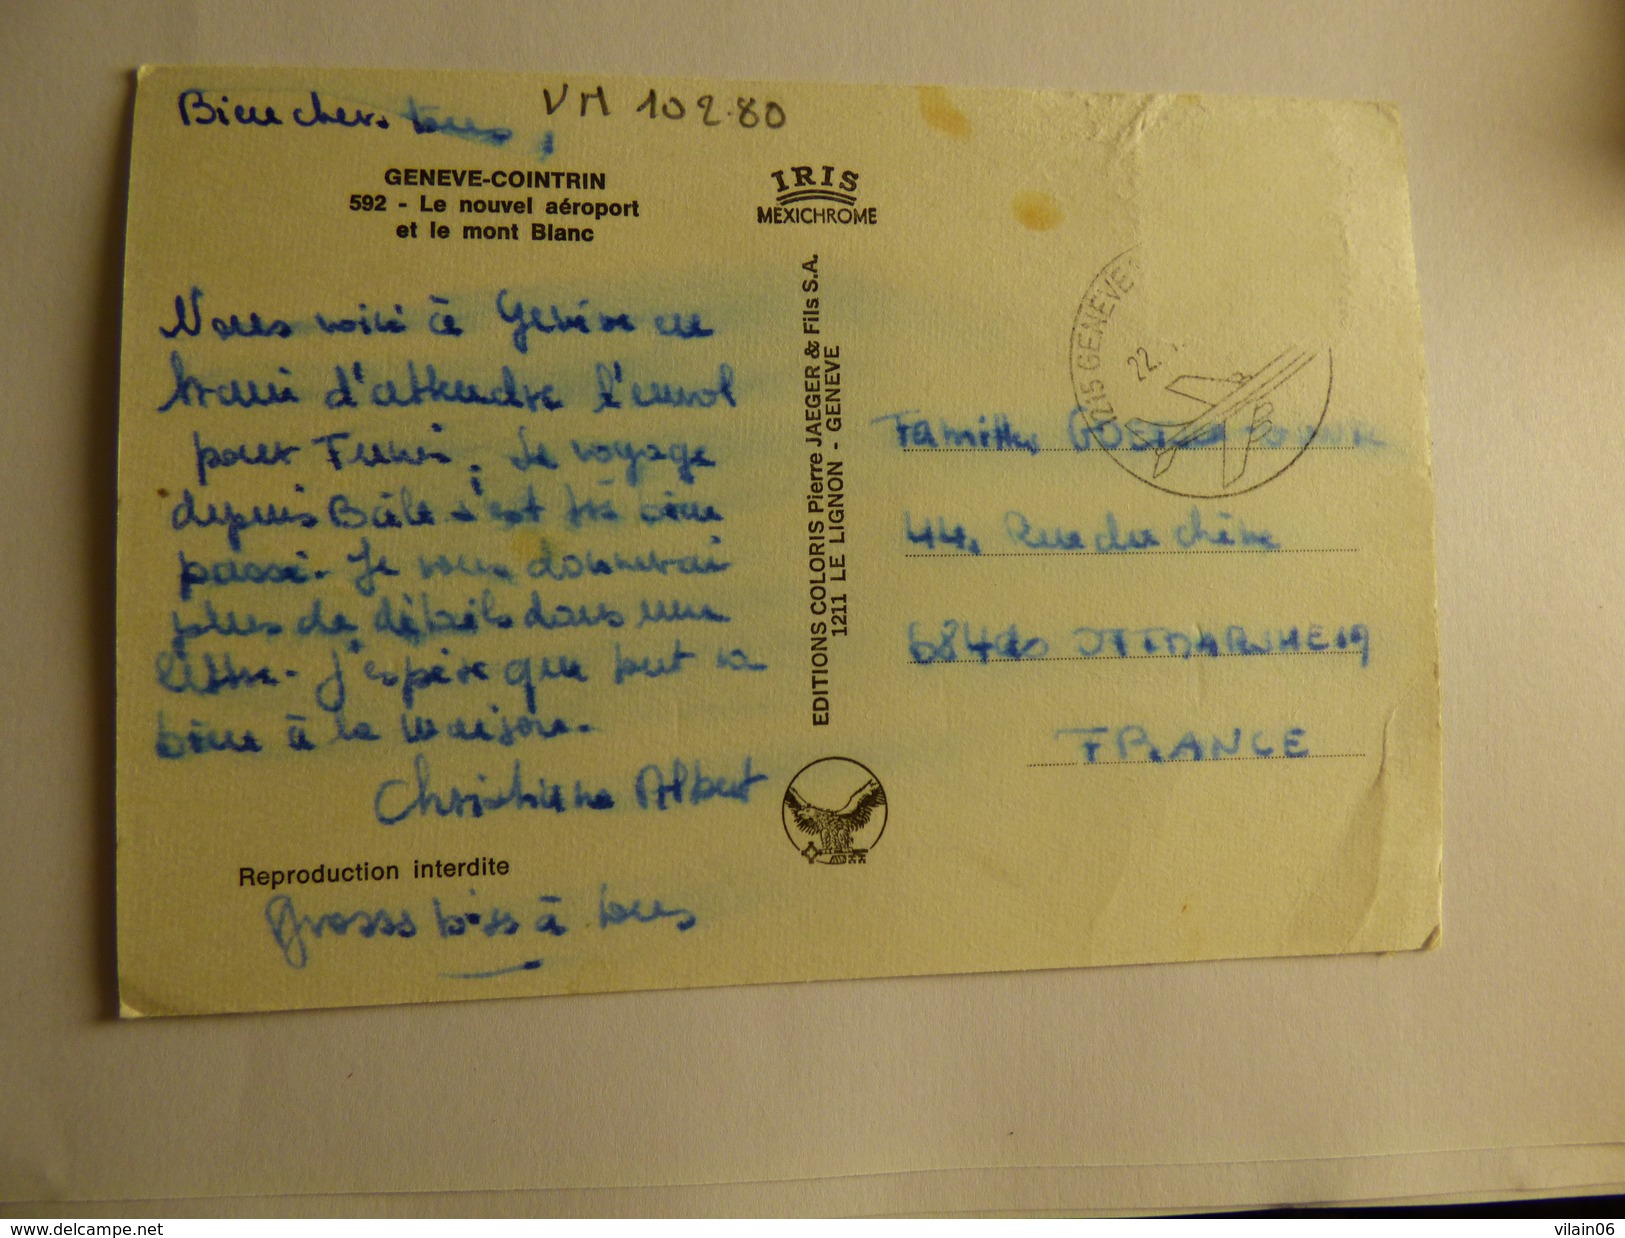 Bien chers tous,
VM 102.80
GENEVE-COINTRIN
592 - Le nouvel aéroport
et le mont Blanc
IRIS
MEXICHROME
Nous voici à Genève en
train d'attendre l'envol
pour Tunis. Le voyage
depuis Bâle s'est très bien
passé. Je vous donnerai
plus de détails dans une
lettre. J'espère que tout va
bien à la maison.
Christiane Albert
Reproduction interdite
Grosses bises à tous
EDITIONS COLORIS Pierre JAEGER & Fils S.A.
1211 LE LIGNON - GENEVE
1215 GENEVE
22.
Famille
44, Rue du chêne
FRANCE
www.delcampe.net
vilain06